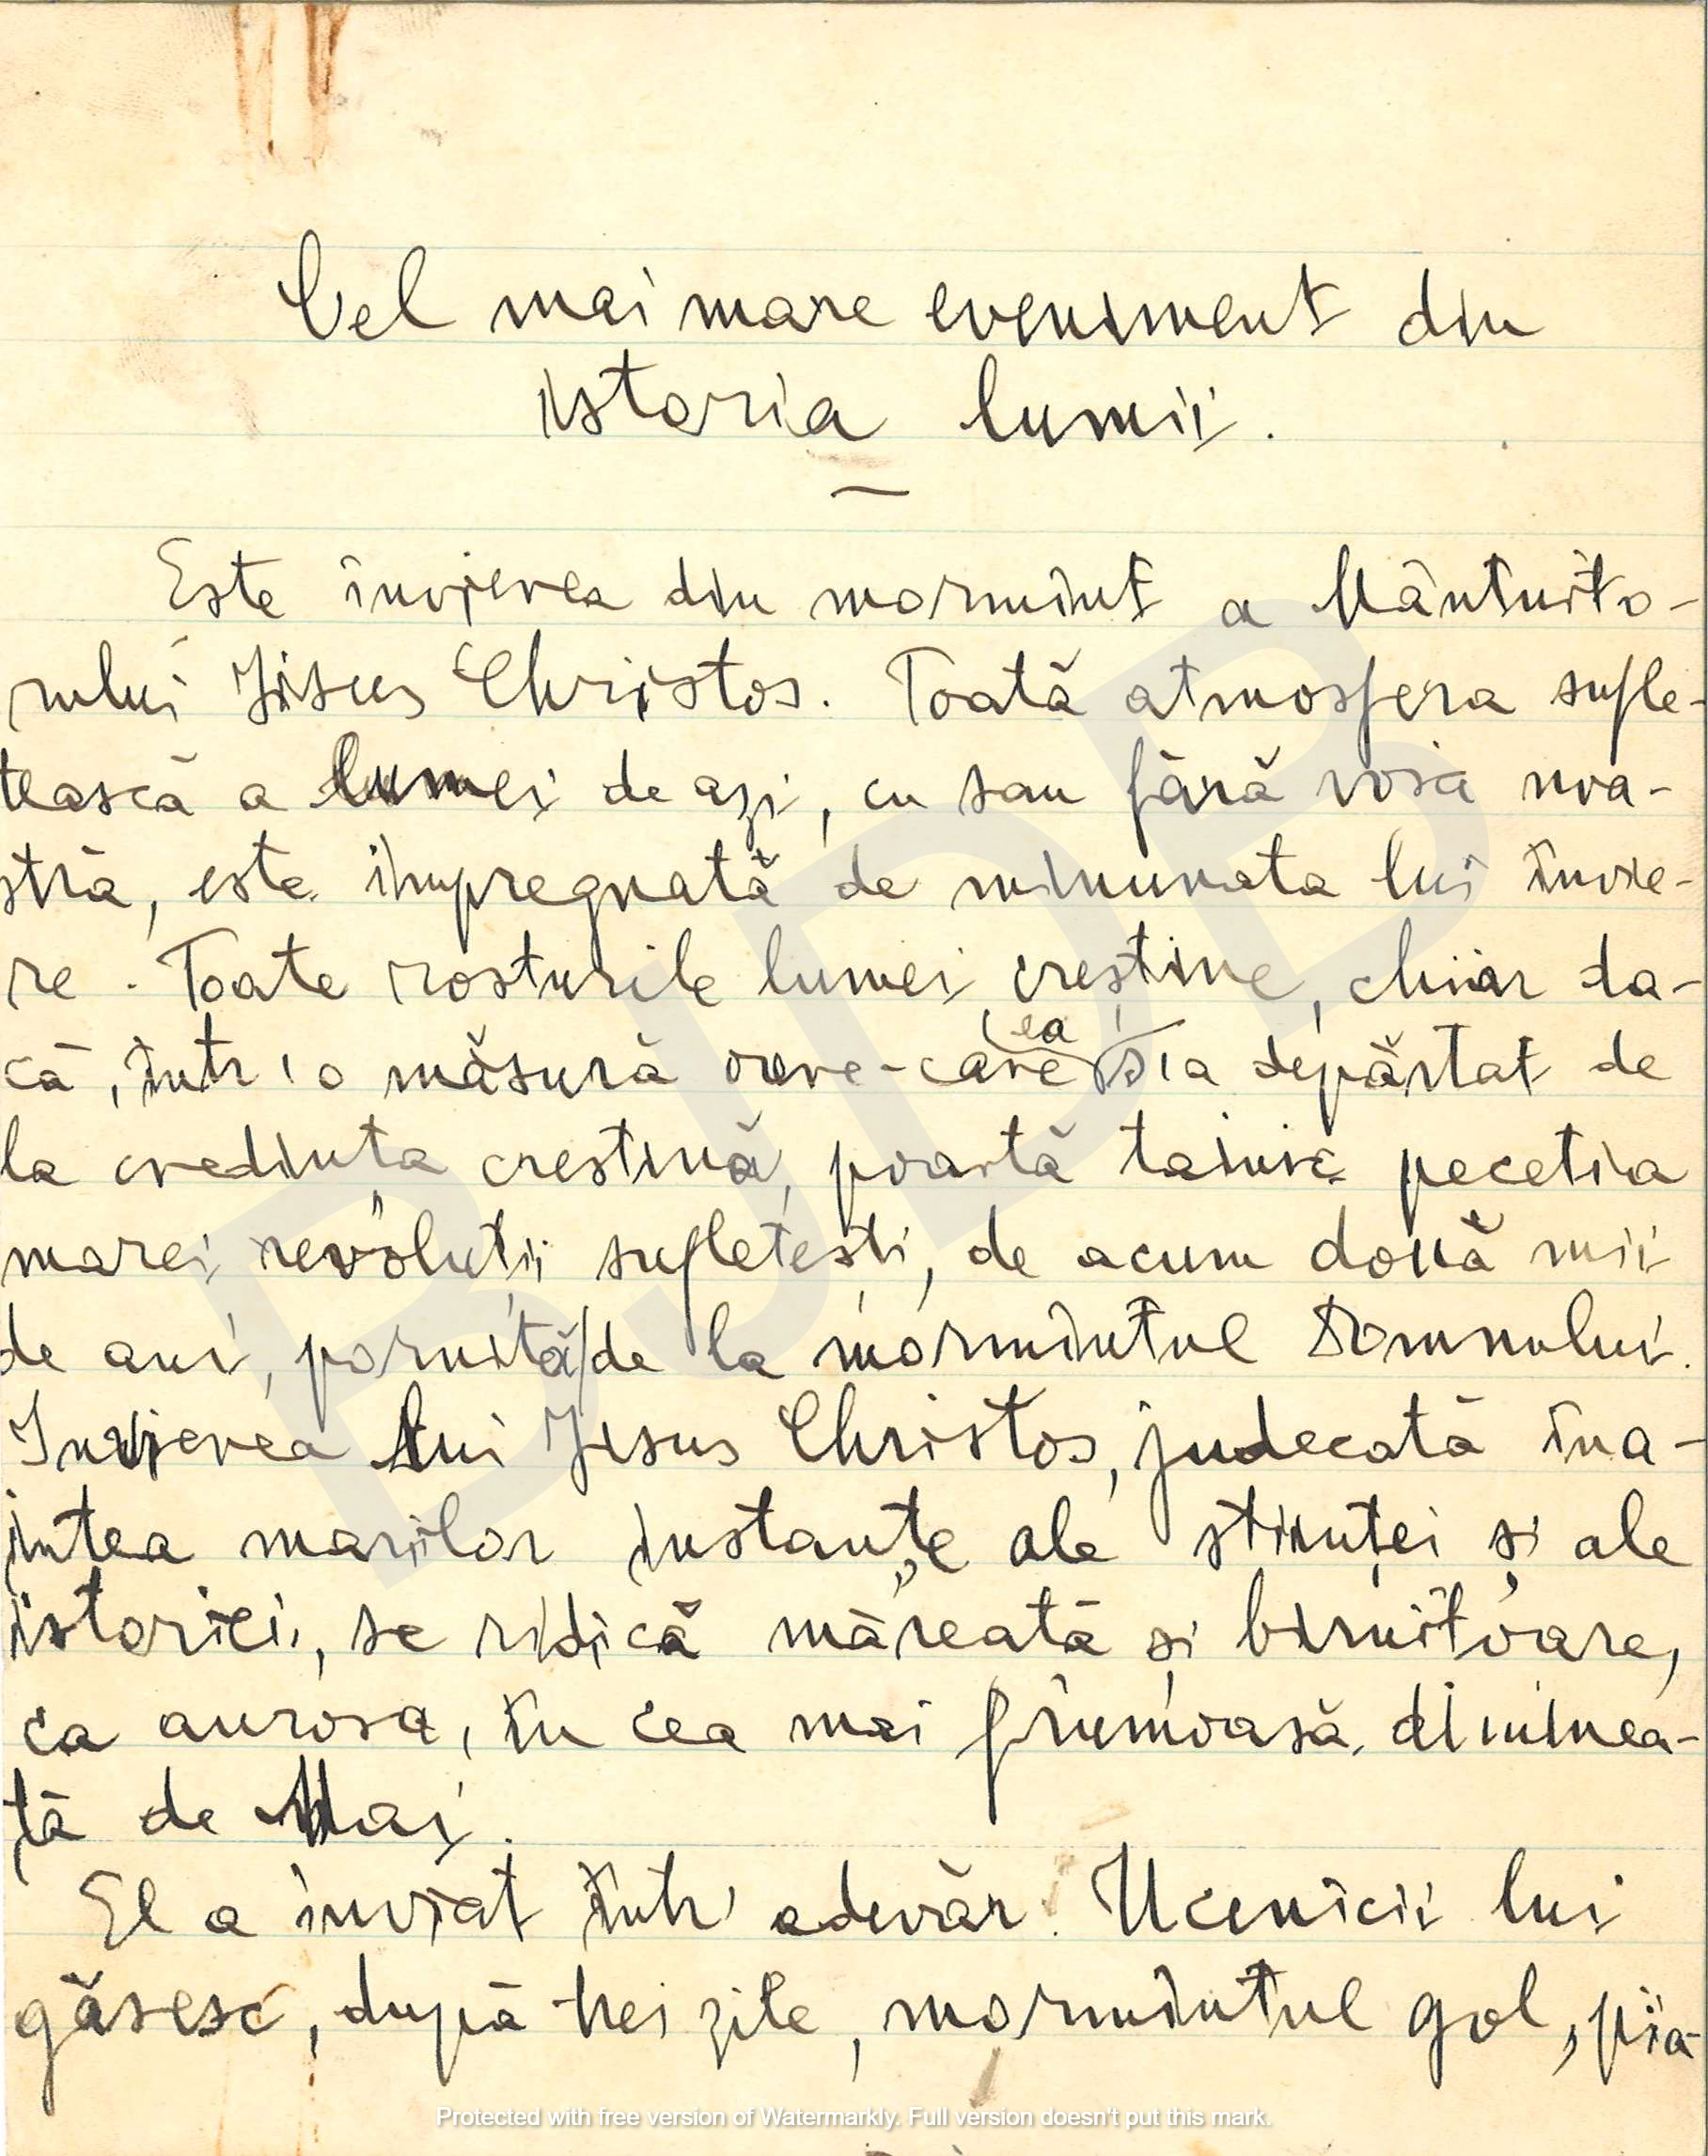 Cel mai mare eveniment din
istoria lumii.
Este învierea din mormînt a Mântuito-
rului Iisus Christos. Toată atmosfera sufle-
tească a lumei de azi, cu sau fără voia noa-
stră, este impregnată de minunata lui învie-
re. Toate rosturile lumei creștine, chiar da-
că, într'o măsură oare-care ea s'a depărtat de
la credința creștină, poartă tainic pecetia
marei revoluții sufletești, de acum două mii
de ani, pornită de la mormîntul Domnului.
Invierea lui Iesus Christos, judecată îna-
intea marilor instanțe ale stiinței și ale
istoriei, se ridică măreată și biruitoare,
ca aurora, în cea mai frumoasă diminea-
ță de Mai.
El a înviat într'adevăr. Ucenicii lui
găsesc, după trei zile, mormîntul gol, pia-
BJDB
Protected with free version of Watermarkly. Full version doesn't put this mark.